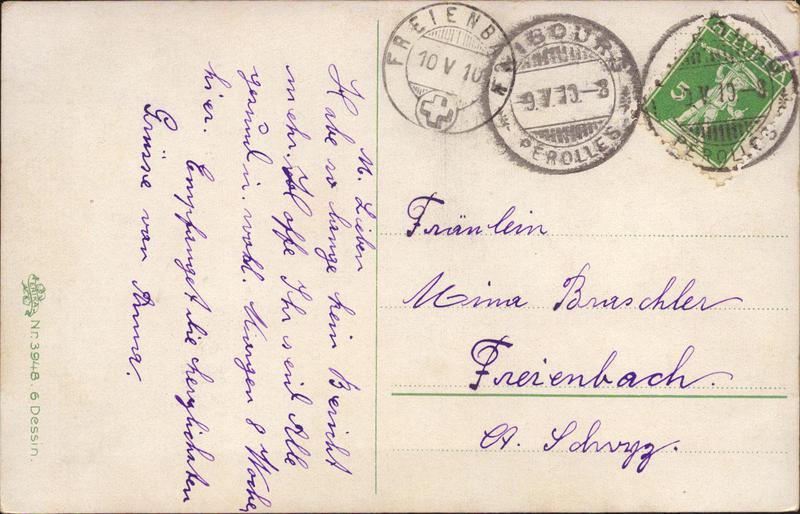 M. Lieben
Habe so lange kein Bericht
mehr. Hoffe Ihr seid Alle
gesund u. wohl. Morgen 8 Wochen
hier. Empfanget die herzlichsten
Grüsse von Anna.
FREIENBA
10 V 10
FRIBOURG
9.V.10-8
PEROLLES
5
9.V.10-8
PEROLLES
Fräulein
Mina Braschler
Freienbach.
Ct. Schwyz.
Nr. 3948. 6 Dessin.